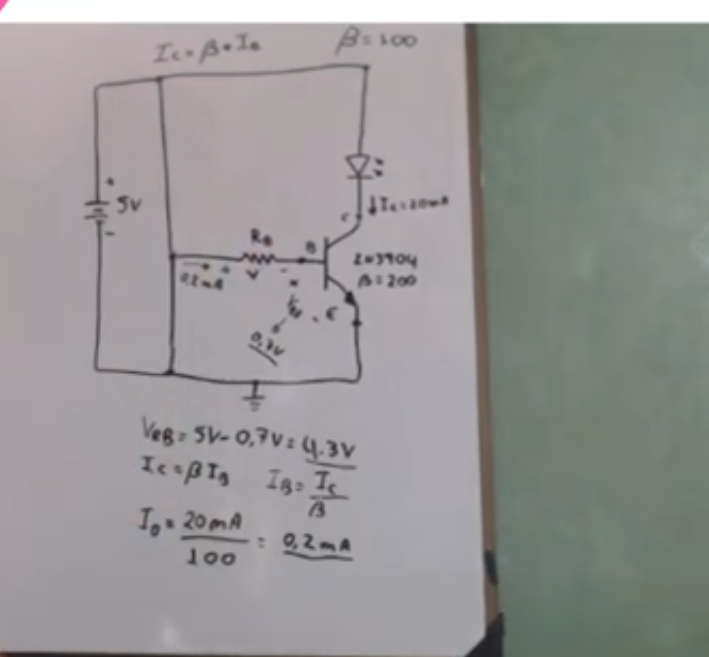 Ic = β • IB β = 100
+
5V
-
↓ Ic = 20mA
C
RB
B
2N3904
β = 200
0,2mA + V -
E
0,7V
VRB = 5V - 0,7V = 4.3V
Ic = β IB IB = Ic / β
IB = 20mA / 100 = 0,2mA